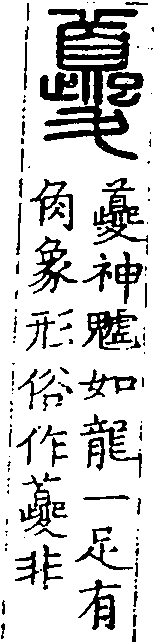 夔
夔神魖如龍一足有
角象形俗作䕫非